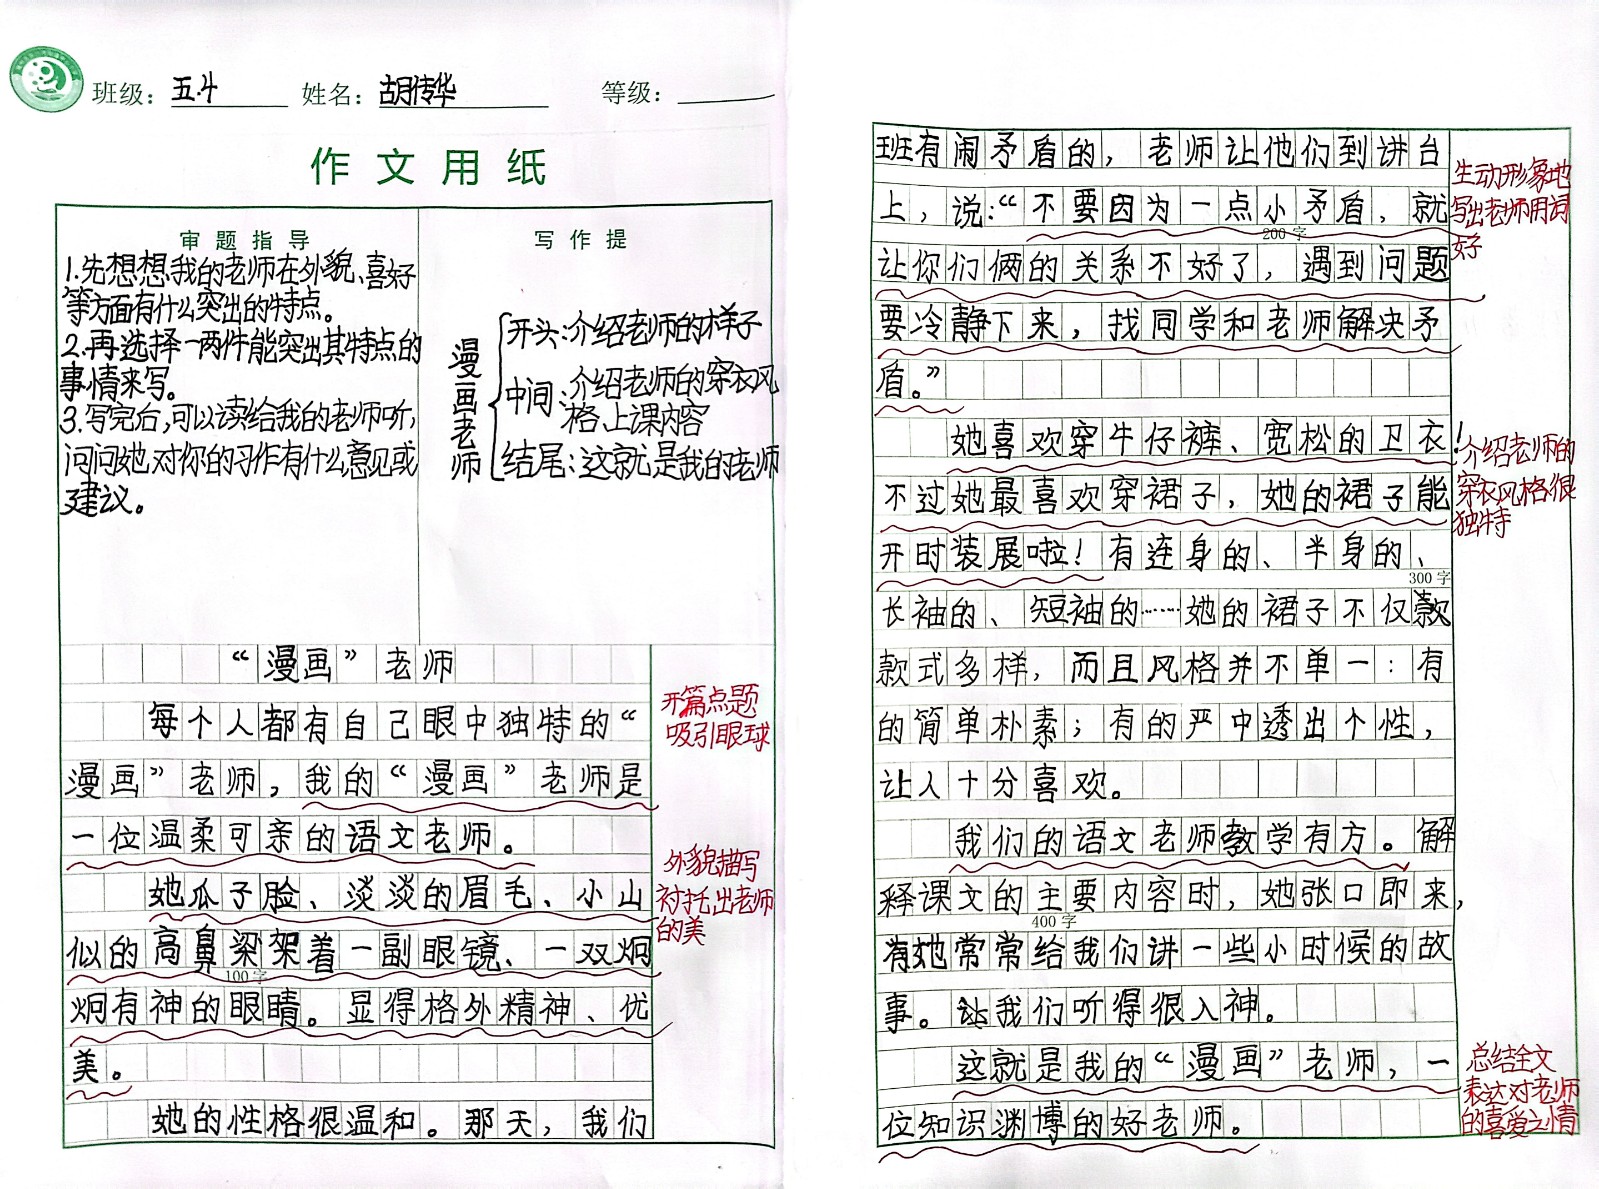 班级：五.4 姓名：胡传华 等级：
作文用纸
审题指导
1.先想想,我的老师在外貌、喜好
等方面有什么突出的特点。
2.再选择一两件能突出其特点的
事情来写。
3.写完后,可以读给我的老师听,
问问她,对你的习作有什么意见或
建议。
写作提
漫画老师
开头:介绍老师的样子
中间:介绍老师的穿衣风
格、上课内容
结尾:这就是我的老师
“漫画”老师
每个人都有自己眼中独特的“
漫画”老师，我的“漫画”老师是
一位温柔可亲的语文老师。
她瓜子脸、淡淡的眉毛、小山
似的高鼻梁架着一副眼镜、一双炯
100字
炯有神的眼睛。显得格外精神、优
美。
她的性格很温和。那天，我们
开篇点题
吸引眼球
外貌描写
衬托出老师
的美
班有闹矛盾的，老师让他们到讲台
上，说:“不要因为一点小矛盾，就
200字
让你们俩的关系不好了，遇到问题
要冷静下来，找同学和老师解决矛
盾。”
她喜欢穿牛仔裤、宽松的卫衣!
不过她最喜欢穿裙子，她的裙子能
开时装展啦！有连身的、半身的、
300字
长袖的、短袖的……她的裙子不仅款
款式多样，而且风格并不单一：有
的简单朴素；有的严中透出个性，
让人十分喜欢。
我们的语文老师教学有方。解
释课文的主要内容时，她张口即来，
400字
有她常常给我们讲一些小时候的故
事。让我们听得很入神。
这就是我的“漫画”老师，一
位知识渊博的好老师。
生动形象地
写出老师用词
好
介绍老师的
穿衣风格很
独特
总结全文
表达对老师
的喜爱之情